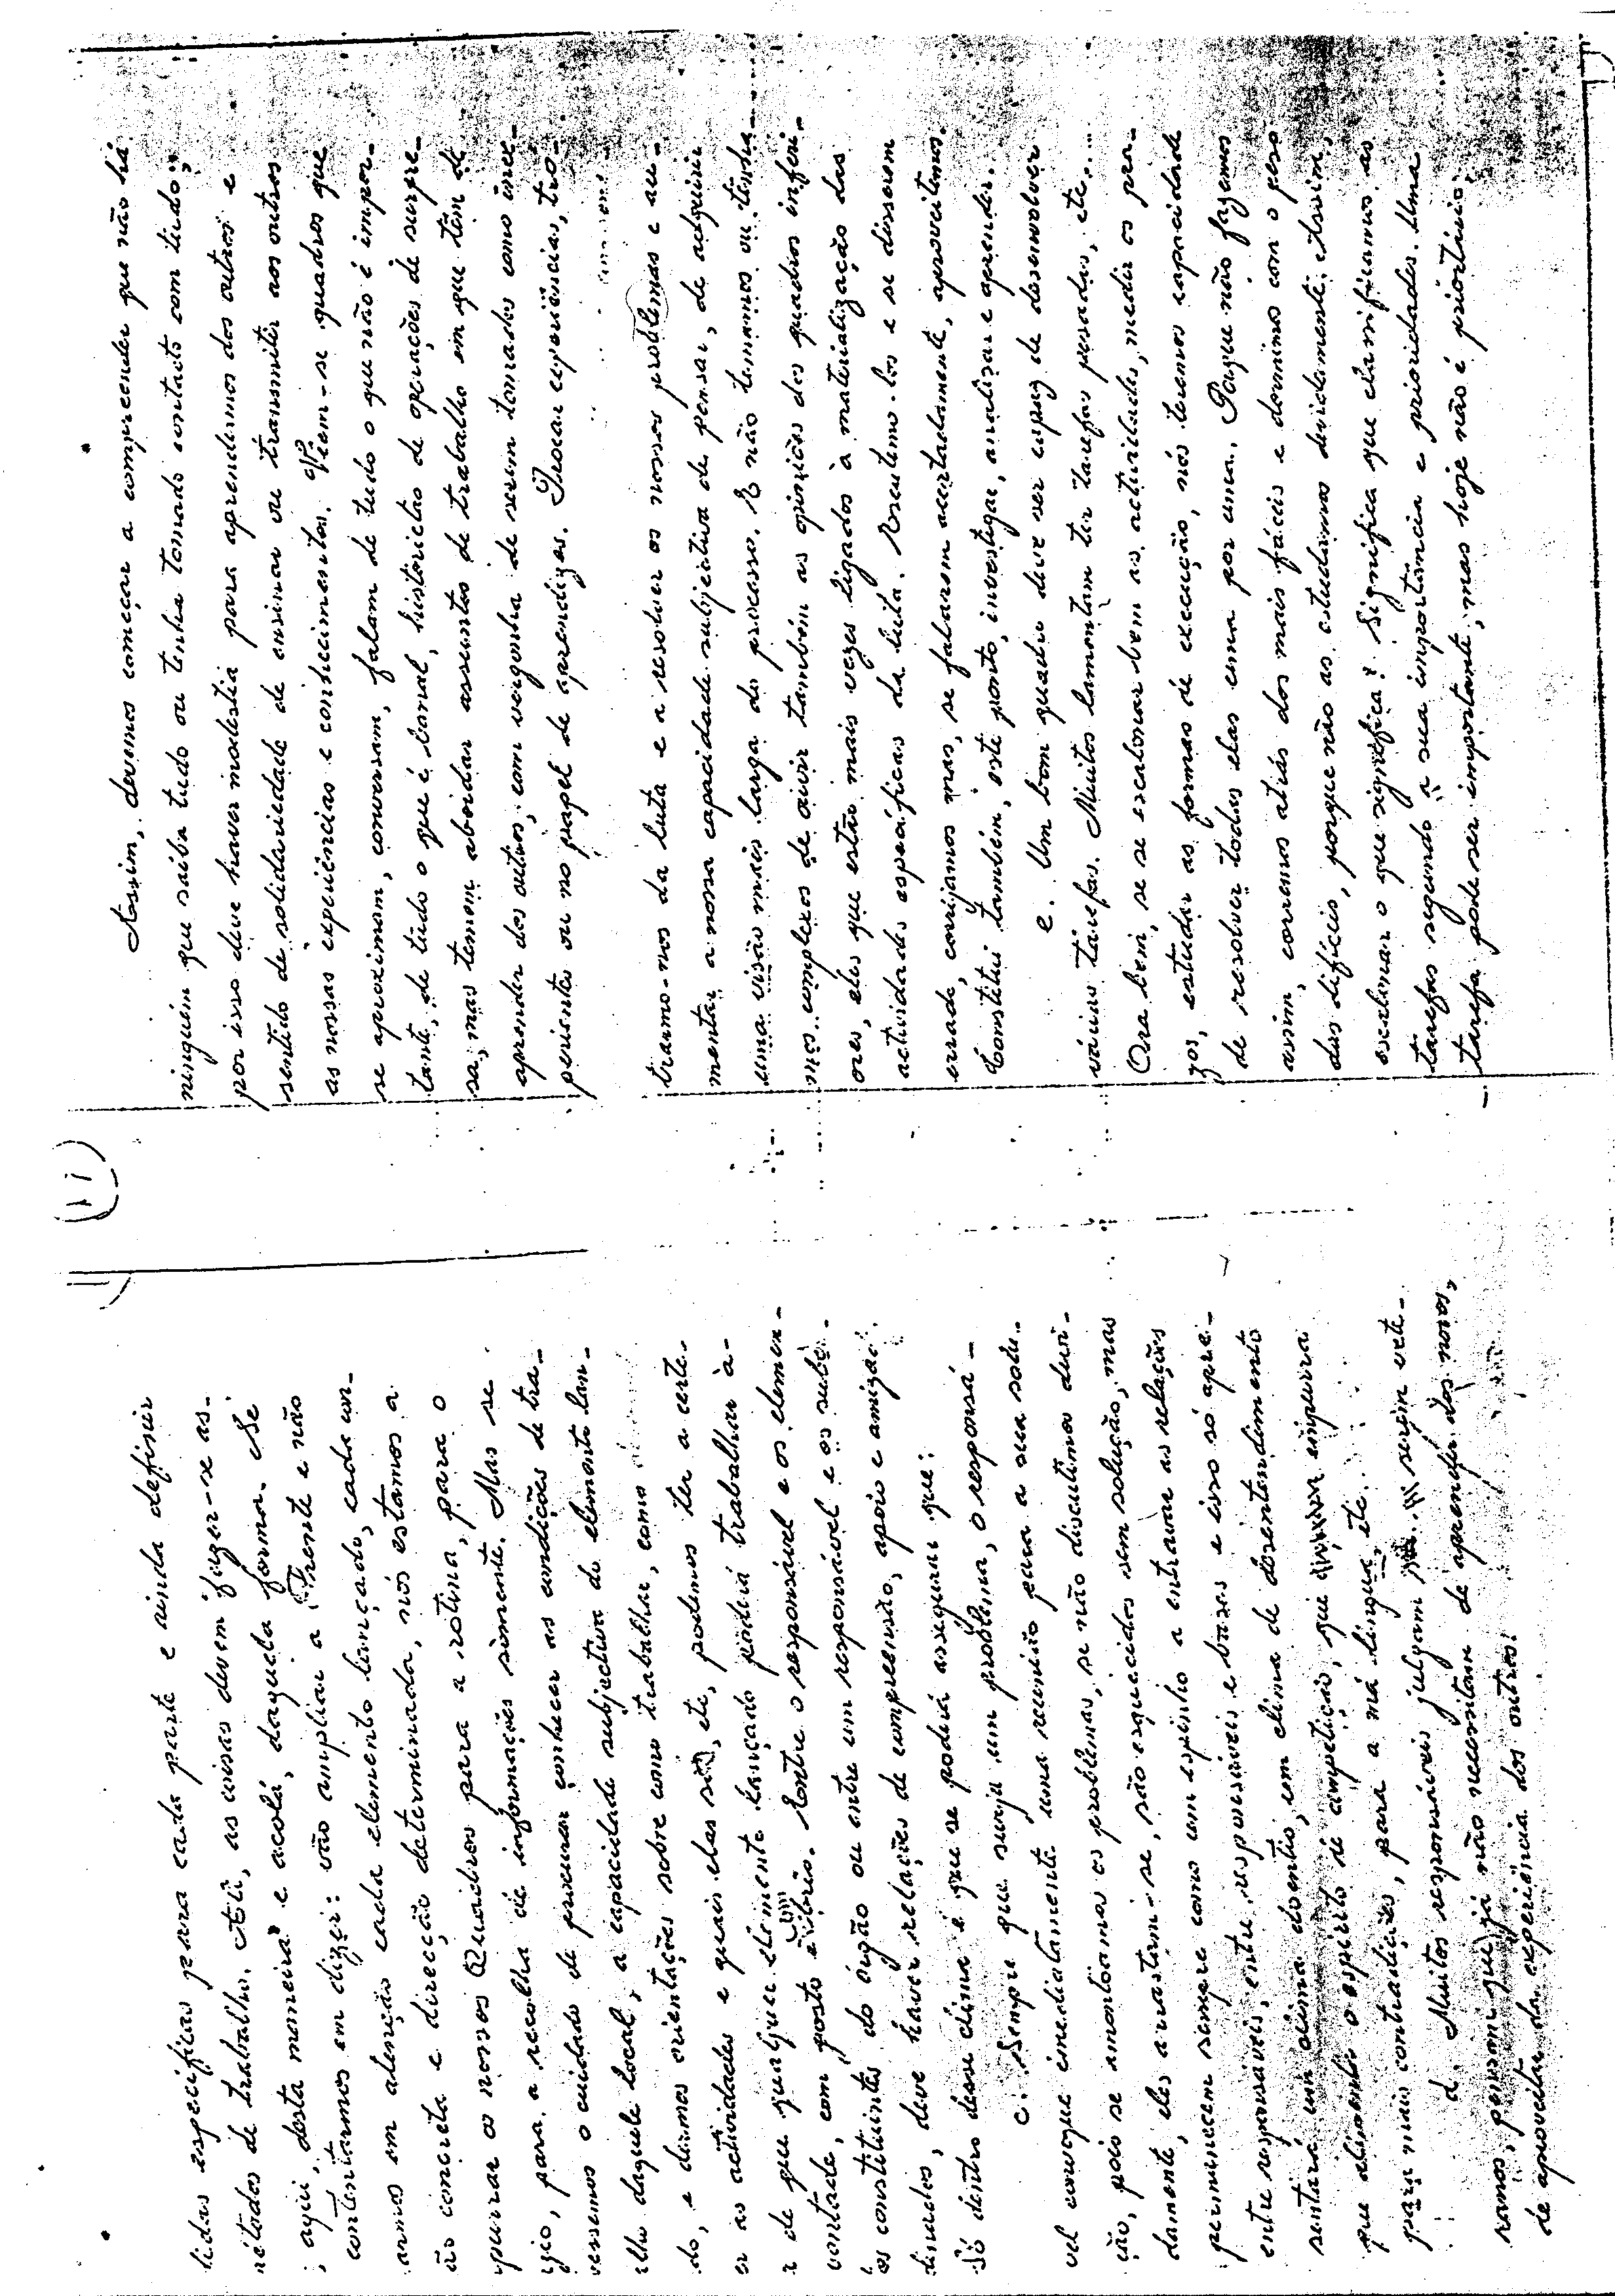 (11)
lidas especificas para cada parte e ainda definir
métodos de trabalho. Ali, as coisas devem fazer-se as-
; aqui, desta maneira e acolá, daquela forma. Se
contentarmos em dizer: vão ampliar a Frente e não
armos em atenção cada elemento lançado, cada con-
ão concreta e direcção determinada, nós estamos a
purrar os nossos Quadros para a rotina, para o
para a recolha de informações sòmente. Mas se
vessemos o cuidado de procurar conhecer as condições de tra-
lho daquele local, a capacidade subjectiva do elemento lan-
do, e dermos orientações sobre como trabalhar, como
er as actividades e quais elas são, etc, podemos ter a certe-
a de que qualquer elemento lançado poderá trabalhar à-
vontade, com gosto e brio. Entre o responsável e os elemen-
tos constituintes do órgão ou entre um responsável e os subor-
dinados, deve haver relações de compreensão, apoio e amizade.
Só dentro desse clima é que se poderá assegurar que:
c. Sempre que surja um problema, o responsá-
vel convoque imediatamente uma reunião para a sua solu-
ção, pois se amontoamos os problemas, se não discutimos devi-
damente, eles arrastam-se, são esquecidos sem solução, mas
permanecem sempre como um espinho a entravar as relações
entre responsáveis, entre responsáveis e bases e isso só apre-
sentará um clima doentio, um clima de desentendimento
que alimenta o espírito de competição, que empurra
para mais contradições, para a má língua, etc.
d. Muitos responsáveis julgam serem vete-
ranos, pensam que já não necessitam de aprender dos novos,
de aproveitar da experiência dos outros.
Assim, devemos começar a compreender que não há
ninguém que saiba tudo ou tenha tomado contacto com tudo;
por isso deve haver modéstia para aprendermos dos outros e
sentido de solidariedade de ensinar ou transmitir aos outros
as nossas experiências e conhecimentos. Vêem-se quadros que
se aproximam, conversam, falam de tudo o que não é impor-
tante, de tudo o que é banal, historietas de operações de surpre-
sa, mas temem abordar assuntos de trabalho em que têm de
aprender dos outros, com vergonha de serem tomados como inex-
perientes ou no papel de aprendizes. Trocar experiências, tro-
tearmo-nos da luta e a resolver os nossos problemas e au-
mentar a nossa capacidade subjectiva de pensar, de adquirir
uma visão mais larga do processo. E não temamos ou tenha-
mos complexos de ouvir também as opiniões dos quadros inferi-
ores, eles que estão mais vezes ligados à materialização das
actividades específicas da luta. Escutemo-los e se disserem
errado, corrijamos mas, se falarem acertadamente, aproveitemos.
Constitui também, este ponto, investigar, analisar e aprender.
e. Um bom quadro deve ser capaz de desenvolver
várias tarefas. Muitos lamentam ter tarefas pesadas, etc....
Ora bem, se se escalonar bem as actividades, medir os pra-
zos, estudar as formas de execução, nós teremos capacidade
de resolver todas elas uma por uma. Porque não fazemos
assim, corremos atrás dos mais fáceis e dormimos com o peso
das difíceis, porque não as estudamos devidamente. Assim,
escalonar o que significa? Significa que classificamos as
tarefas segundo a sua importância e prioridades. Uma
tarefa pode ser importante, mas hoje não é prioritária;